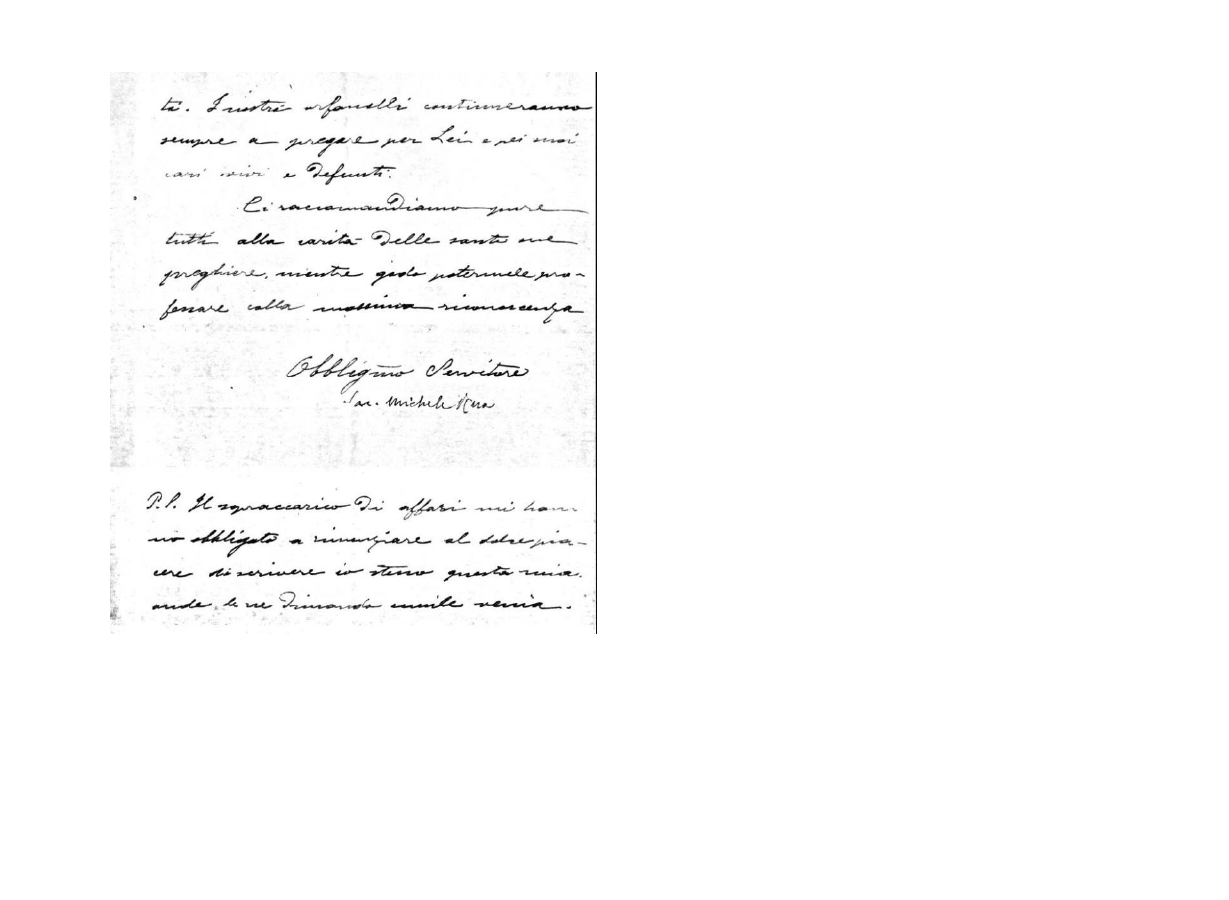 tà. I nostri orfanelli continueranno
sempre a pregare per Lei e pei suoi
cari vivi e defunti.
Ci raccomandiamo pure
tutti alla carità delle sante sue
preghiere, mentre godo potermele pro-
fessare colla massima riconoscenza
Obbligmo Servitore
Sac. Michele Rua
P.S. Il sopraccarico di affari mi han-
no obbligato a rinunziare al dolce pia-
cere di scrivere io stesso questa mia.
onde le ne dimando umile venia.